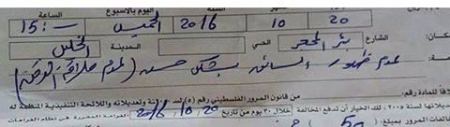 اليوم بالاسبوع الساعة
20 10 2016 الخميس 15:
كان: الشارع بئر المحجر الحي المدينة الخليل
عدم ظهور السائق بشكل حسن (لعدم حلاقة الذقن)
لافاً للمادة رقم ( من قانون المرور الفلسطيني رقم (٥) لسنة وتعديلاته واللائحة التنفيذية
لسنة ٢٠٠٥، لك الخيار أن تدفع المخالفة خلال ٣٠ يوم من تاريخ 20 10 2016
50